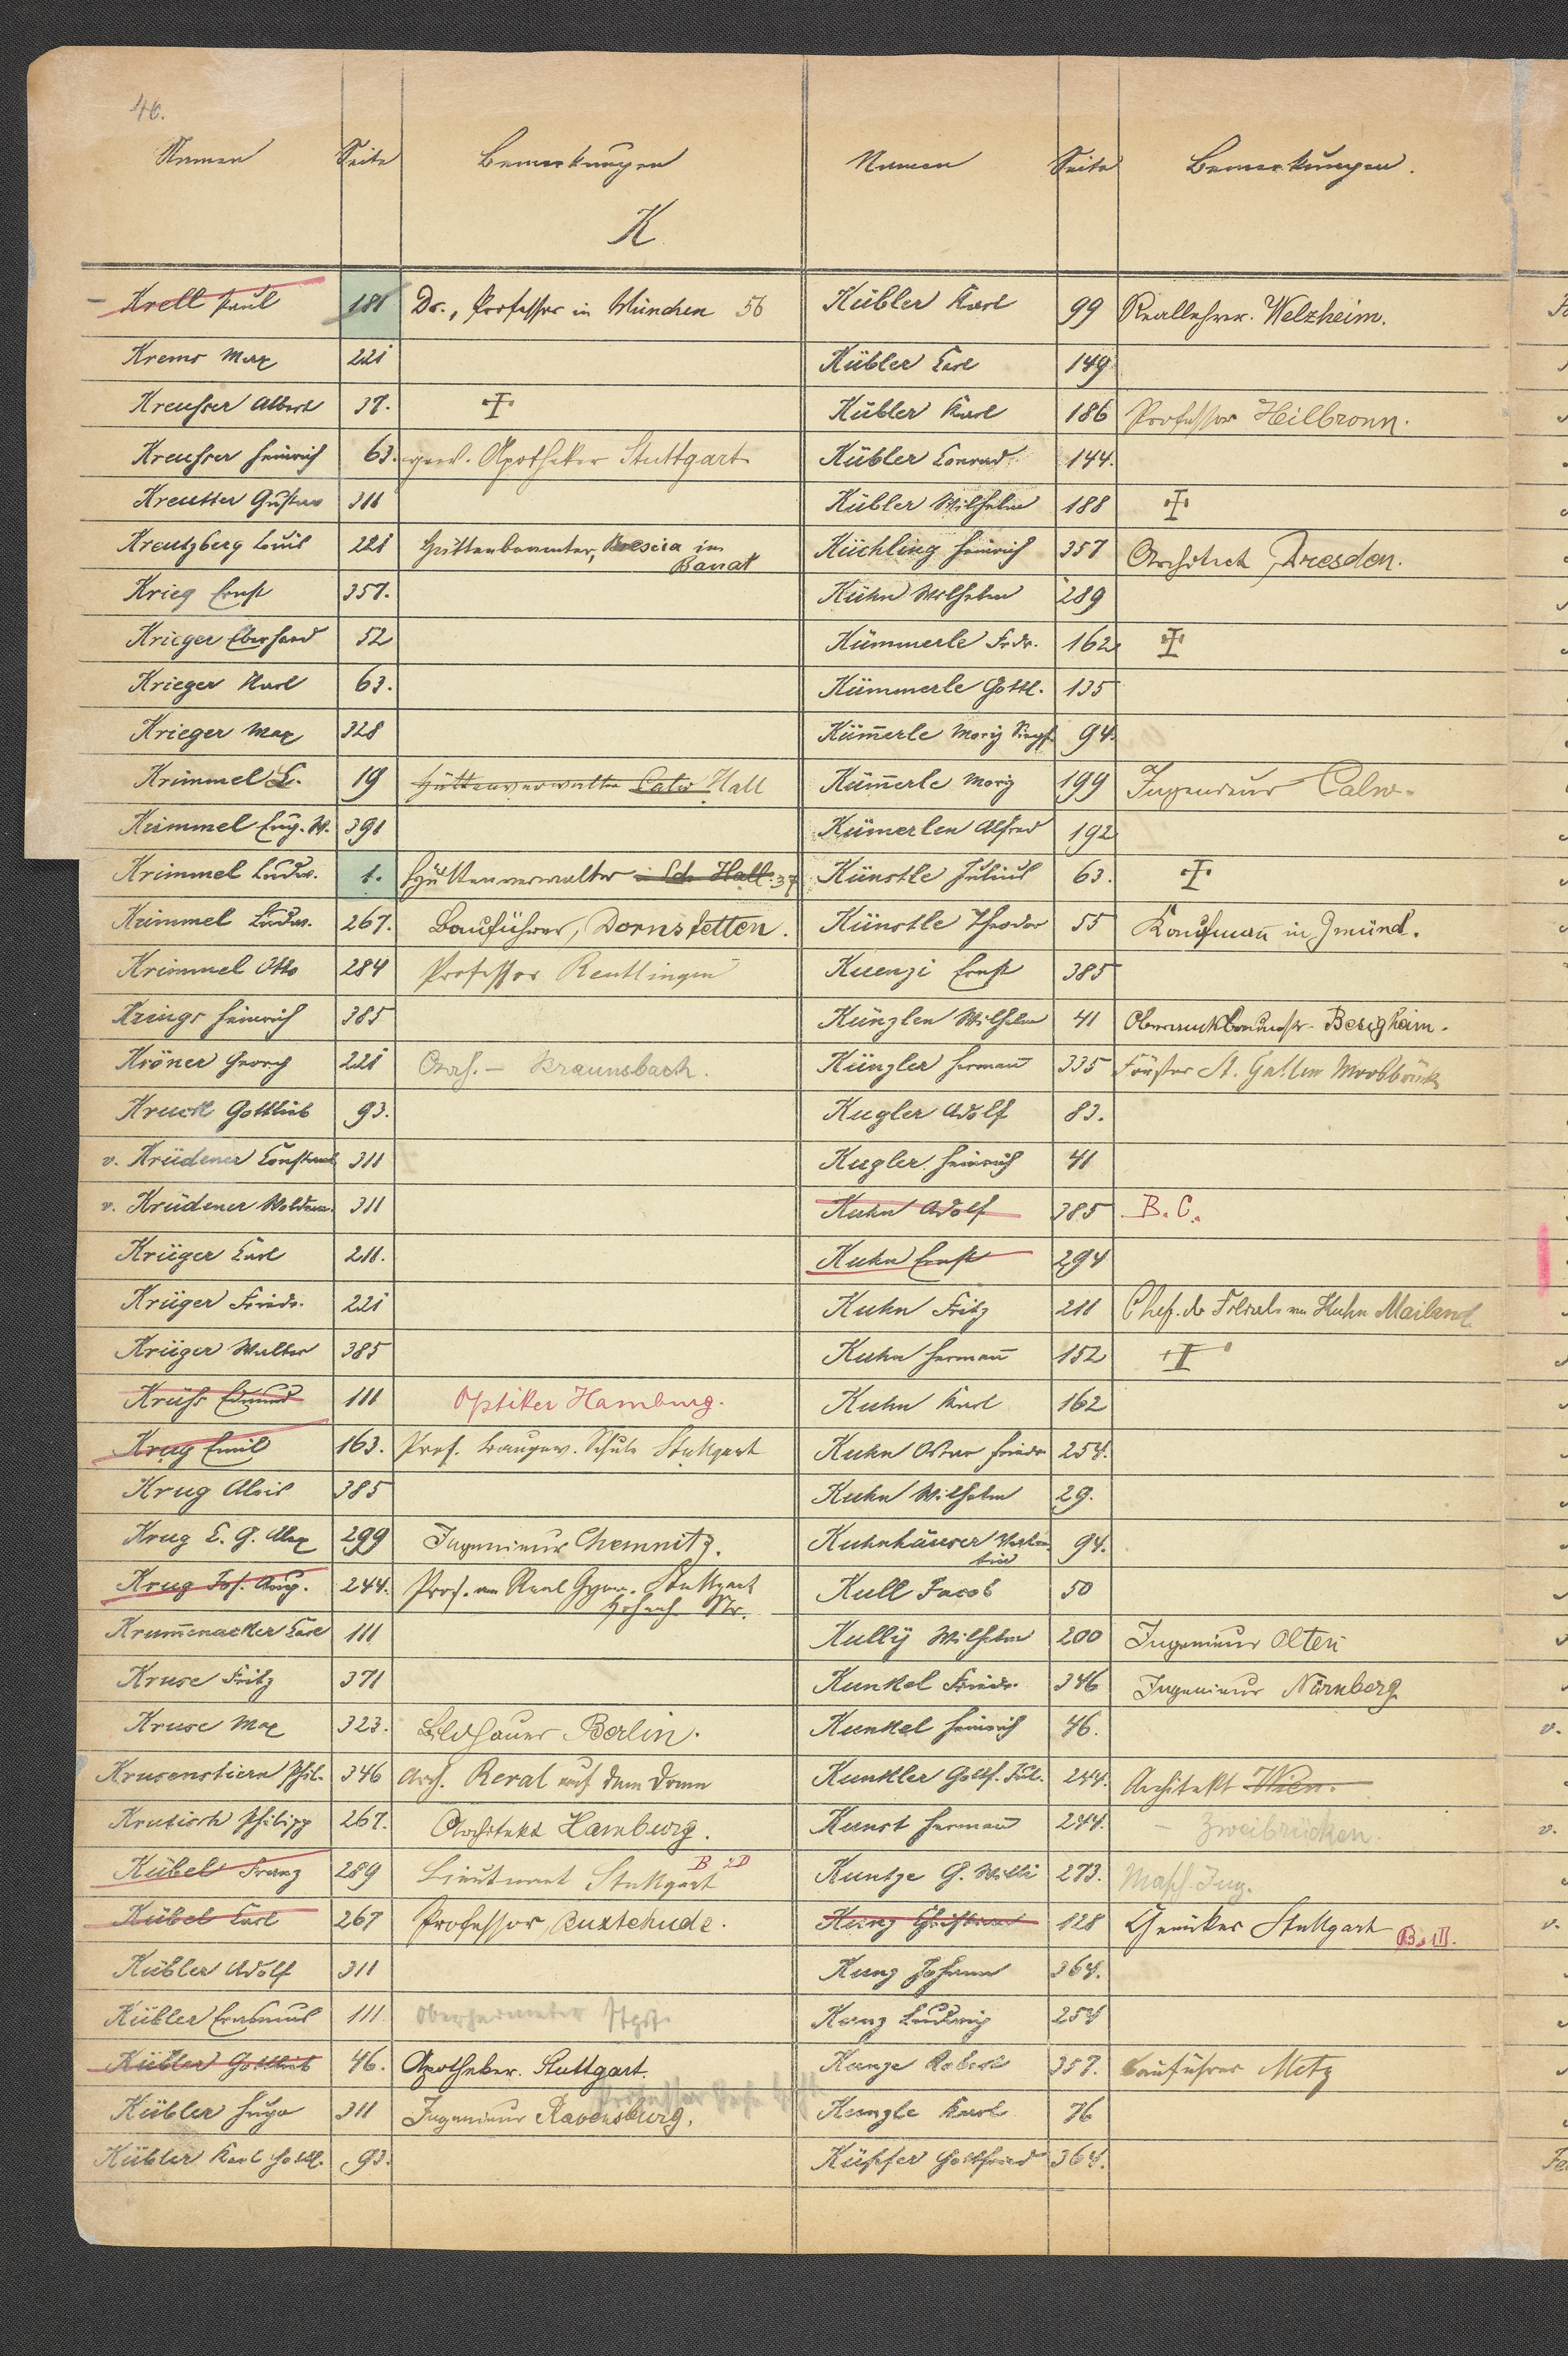 46.
Namen Seite Bemerkungen
K
Krell Paul 181 Dr., Professor in München 56
Krems Max 221
Kreuser Albert 37. †
Kreuser Heinrich 63. Apotheker Stuttgart
Kreutter Gustav 311
Kreutzberg Louis 221 Hüttenbeamter, in
Banat
Krieg Ernst 357.
Krieger Eberhard 52
Krieger Karl 63.
Krieger Max 328
Krimmel 19 Hüttenverwalter Calw Hall
Krimmel Eug. W. 391
Krimmel Ludw. 1. Hüttenverwalter Sch. Hall. 37
Krimmel Ludw. 267. Bauführer, Dornstetten.
Krimmel Otto 284 Professor Reutlingen
Krings Heinrich 385
Kröner Georg 221 Braunsbach.
Kruck Gottlieb 93.
v. Krüdener 311
v. Krüdener Woldem. 311
Krüger Carl 211.
Krüger Friedr. 221
Krüger Walter 385
Krüss Edmund 111 Optiker Hamburg.
Krug Emil 163. Prof. Baugew. Schule Stuttgart
Krug Alois 385
Krug C. G. Alex 299 Ingenieur Chemnitz.
Krug Jos. Aug. 244. Prof. am Real Gymn. Stuttgart
Str.
Krum̄enacker Carl 111
Kruse Fritz 371
Kruse Max 323. Bildhauer Berlin.
Krusenstiern Phil. 346 Arch. Reval auf dem Dom
Philipp 267. Architekt Hamburg.
Kübel Franz 289 Lieutenant Stuttgart
Kübel Carl 267 Professor, Buxtehude.
Kübler Adolf 311
Kübler Erasmus 111
Kübler Gottlieb 46. Apotheker. Stuttgart.
Kübler Hugo 311 Ingenieur Ravensburg.
Kübler Karl Gottl. 93.
Namen Seite Bemerkungen.
Kübler Karl 99 Reallehrer. Welzheim.
Kübler Carl 149
Kübler Karl 186 Professor Heilbronn.
Kübler Conrad 144.
Kübler Wilhelm 188 †
Küchling Heinrich 357 Architect, Dresden.
Kühn Wilhelm 289
Kümmerle Frdr. 162 †
Kümmerle Gottl. 135
Küm̄erle Moriz 94.
Küm̄erle Moriz 199 Ingenieur Calw.
Küm̄erlen Alfred 192
Künstle Julius 63. †
Künstle Theodor 55 Kaufman̄ in Gmünd.
Kuenzi Ernst 385
Künzlen Wilhelm 41 Besigheim.
Künzler Herman̄ 335 Förster St. Gallen
Kugler Adolf 83.
Kugler Heinrich 41
Kuhn Adolf 385 B. C.
Kuhn Ernst 294
Kuhn Fritz 211 Chef. der Filiale von Kuhn Mailand
Kuhn Herman̄ 152 †
Kuhn Karl 162
Kuhn Friedr 254.
Kuhn Wilhelm 29.
Kuhnhäuser 94.
Kull Jacob 50
Kully Wilhelm 200 Ingenieur Olten
Kunkel Friedr. 346 Ingenieur Nürnberg
Kunkel Heinrich 46.
Kunkler Gottf. Jul. 244. Architekt Wien.
Kunst Herman̄ 244. - Zweibrücken.
Kuntze G. Willi 273. Masch. Ing.
Kunz 128 Chemiker Stuttgart B. III.
Kunz Johann 364.
Kunz Ludwig 254
Kunze Robert 357. Bauführer Metz
Kunzle Karl 76
Küpfer Gottfried 364.